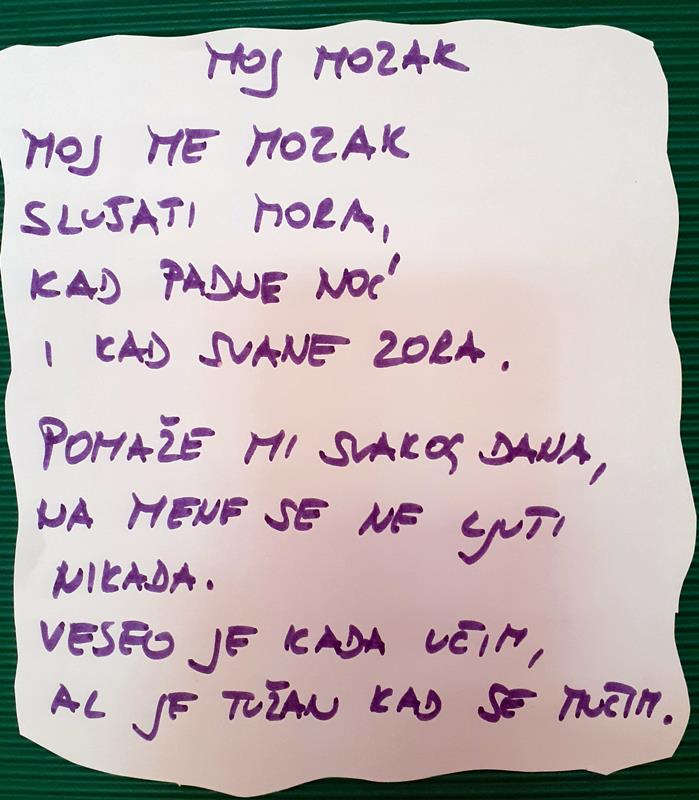 MOJ MOZAK
MOJ ME MOZAK
SLUŠATI MORA,
KAD PADNE NOĆ
I KAD SVANE ZORA.
POMAŽE MI SVAKOG DANA,
NA MENE SE NE LJUTI
NIKADA.
VESEO JE KADA UČIM,
AL JE TUŽAN KAD SE MUČIM.